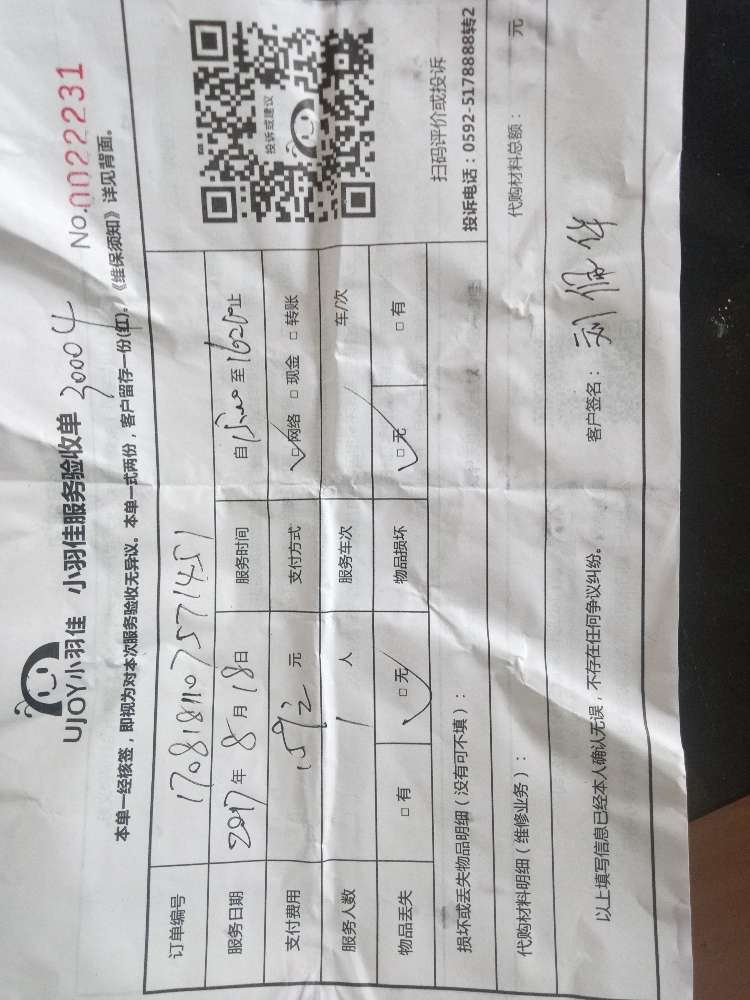 UJOY小羽佳 小羽佳服务验收单 3000 4
No.0022231
本单一经核签，即视为对本次服务验收无异议。本单一式两份，客户留存一份(红)。《维保须知》详见背面。
订单编号 170818110757145 1
服务日期 2017年8月18日 服务时间 自 至1620止
支付费用 元 支付方式 □网络 □现金 □转账
服务人数 1 人 服务车次 车/次
物品丢失 □有 □无 物品损坏 □无 □有
投诉或建议
扫码评价或投诉
投诉电话：0592-5178888转2
损坏或丢失物品明细（没有可不填）：
代购材料明细（维修业务）： 代购材料总额： 元
以上填写信息已经本人确认无误，不存在任何争议纠纷。 客户签名：